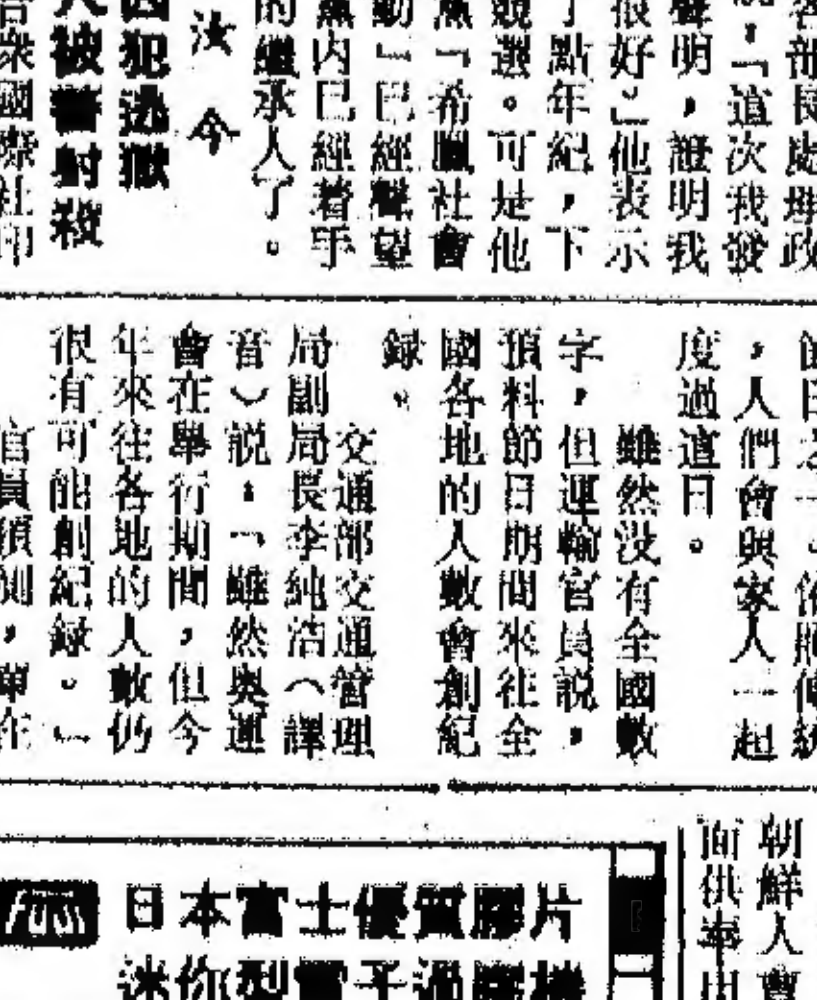 各部長處理政
說：「這次我發
聲明，證明我
很好」他表示
了點年紀，下
競選。可是他
黨「希臘社會
動」已經聲望
黨內已經着手
的繼承人了。
汝今
囚犯逃獄
人被警射殺
合眾國際社印
節日之一。依照傳統
，人們會與家人一起
度過這日。
雖然没有全國數
字，但運輸官員説，
預料節日期間來往全
國各地的人數會創紀
録。
交通部交通管理
局副局長李純浩（譯
音）説：「雖然奥運
會在舉行期間，但今
年來往各地的人數仍
很有可能創紀録。」
官員預測，單在
朝鮮人
面供奉
日本富士優質膠片
迷你型電子過膠機